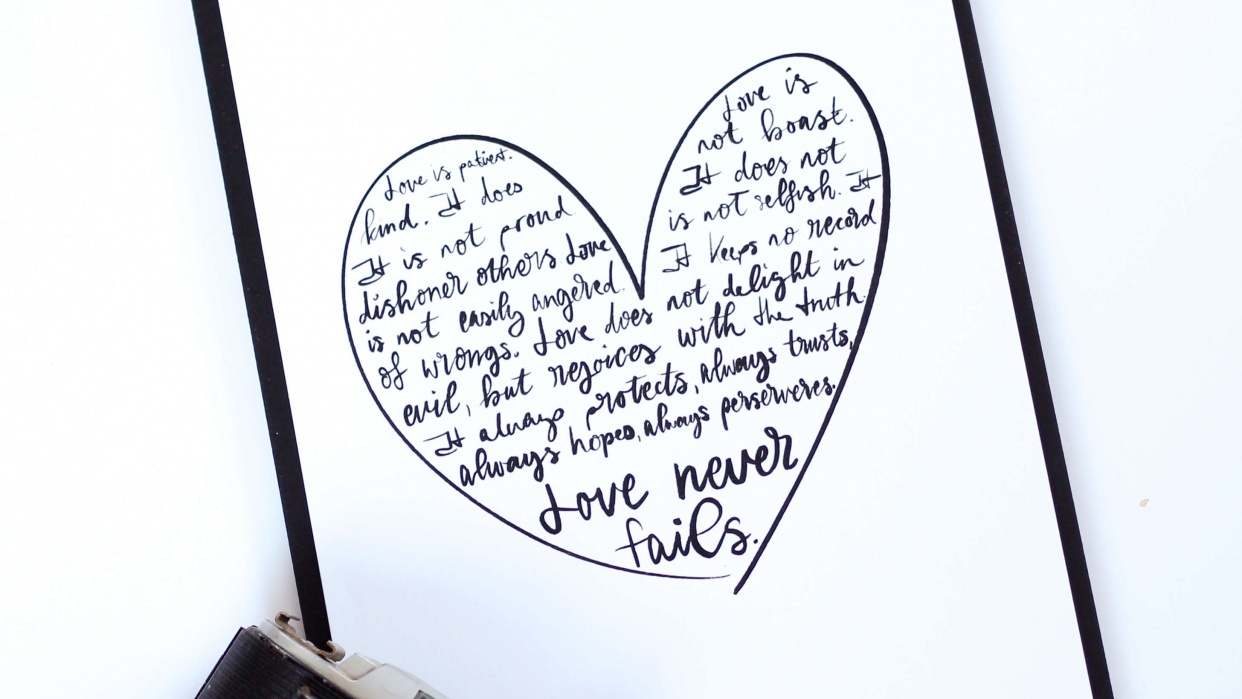 Love is patient. Love is
kind. It does not boast.
It is not proud It does not
dishoner others Love is not selfish. It
is not easily angered. It keeps no record
of wrongs. Love does not delight in
evil, but rejoices with the truth.
It always protects, always trusts,
always hopes, always perserveres.
Love never
fails.